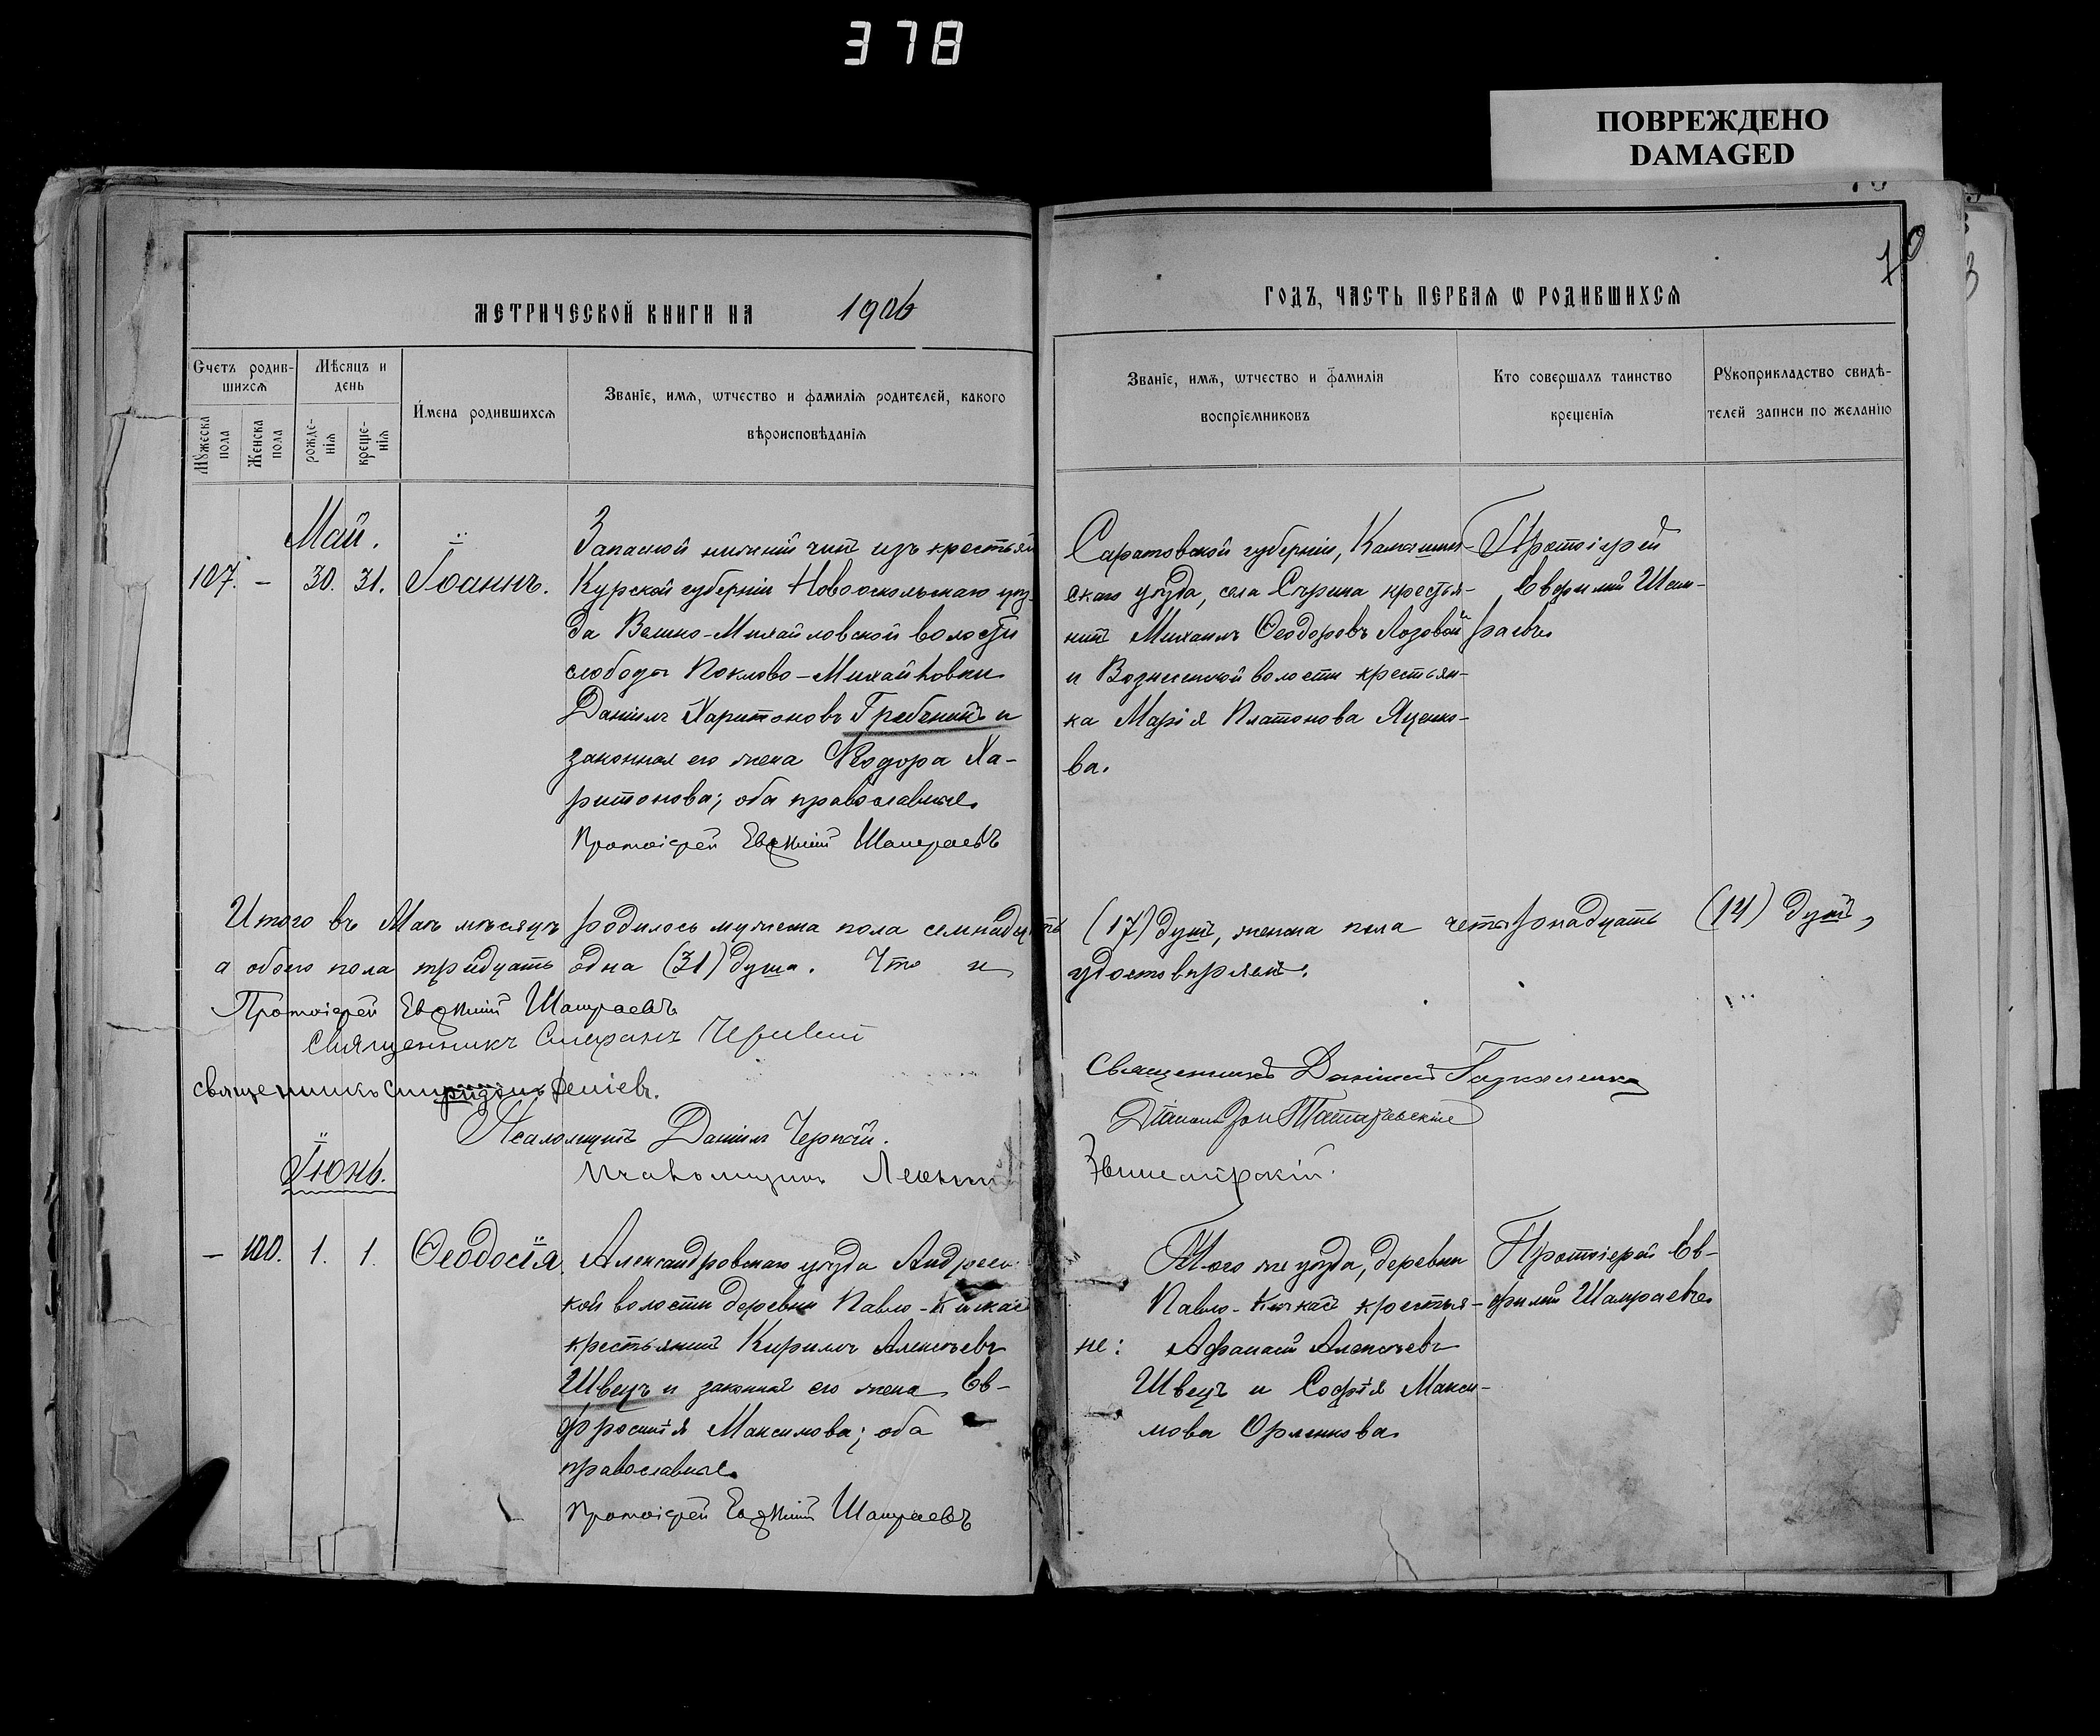 378
ПОВРЕЖДЕНО
DAMAGED
70
МЕТРИЧЕСКОЙ КНИГИ НА 1906
ГОДЪ, ЧАСТЬ ПЕРВАЯ Ѡ РОДИВШИХСЯ
Счетъ родив-
шихся
Мѣсяцъ и
день
Имена родившихся
Званіе, имя, ѡтчество и фамилія родителей, какого
вѣроисповѣданія
Мужеска
пола
Женска
пола
рожде-
нія
креще-
нія
Званіе, имя, ѡтчество и фамилія
воспріемниковъ
Кто совершалъ таинство
крещенія
Рукоприкладство свидѣ-
телей записи по желанію
Май.
107. – 30. 31. Іоаннъ.
Запасной нижній чинъ изъ крестьян
Курской губерніи Новооскольскаго уѣз-
да Велико-Михайловской волости
слободы Михайловки
Даніилъ Харитоновъ Гребеникъ и
законная его жена Ѳеодора Ха-
ритонова; оба православные.
Протоіерей Евфимій Шамраевъ
Саратовской губерніи, Камышин-
скаго уѣзда, села крестья-
нинъ Михаилъ Ѳеодоровъ Лозовой
и Вознесенской волости крестьян-
ка Марія Платонова Яценко-
ва.
Протоіерей
Евфимій Шам-
раевъ
Итого въ Маѣ мѣсяцѣ родилось мужеска пола семнадцать (17) душъ, женска пола четырнадцать (14) душъ,
а обоего пола тридцать одна (31) душа. Что и удостовѣряемъ.
Протоіерей Евфимій Шамраевъ
Священникъ Стефанъ
священникъ Спиридонъ
Псаломщикъ Даніилъ
Псаломщикъ
Священникъ Даніилъ
Діаконъ
Іюнь.
– 100. 1. 1. Ѳеодосія.
Александровскаго уѣзда Андреев-
кой волости деревни Павло-Кичкас
крестьянинъ Кириллъ Алексѣевъ
Швецъ и законная его жена Ев-
фросинія Максимова; оба
православные.
Протоіерей Евфимій Шамраевъ
Того же уѣзда, деревни
Павло-Кичкас крестья-
не: Афанасій Алексѣевъ
Швецъ и Софія Макси-
мова Орленкова.
Протоіерей Ев-
фимій Шамраевъ